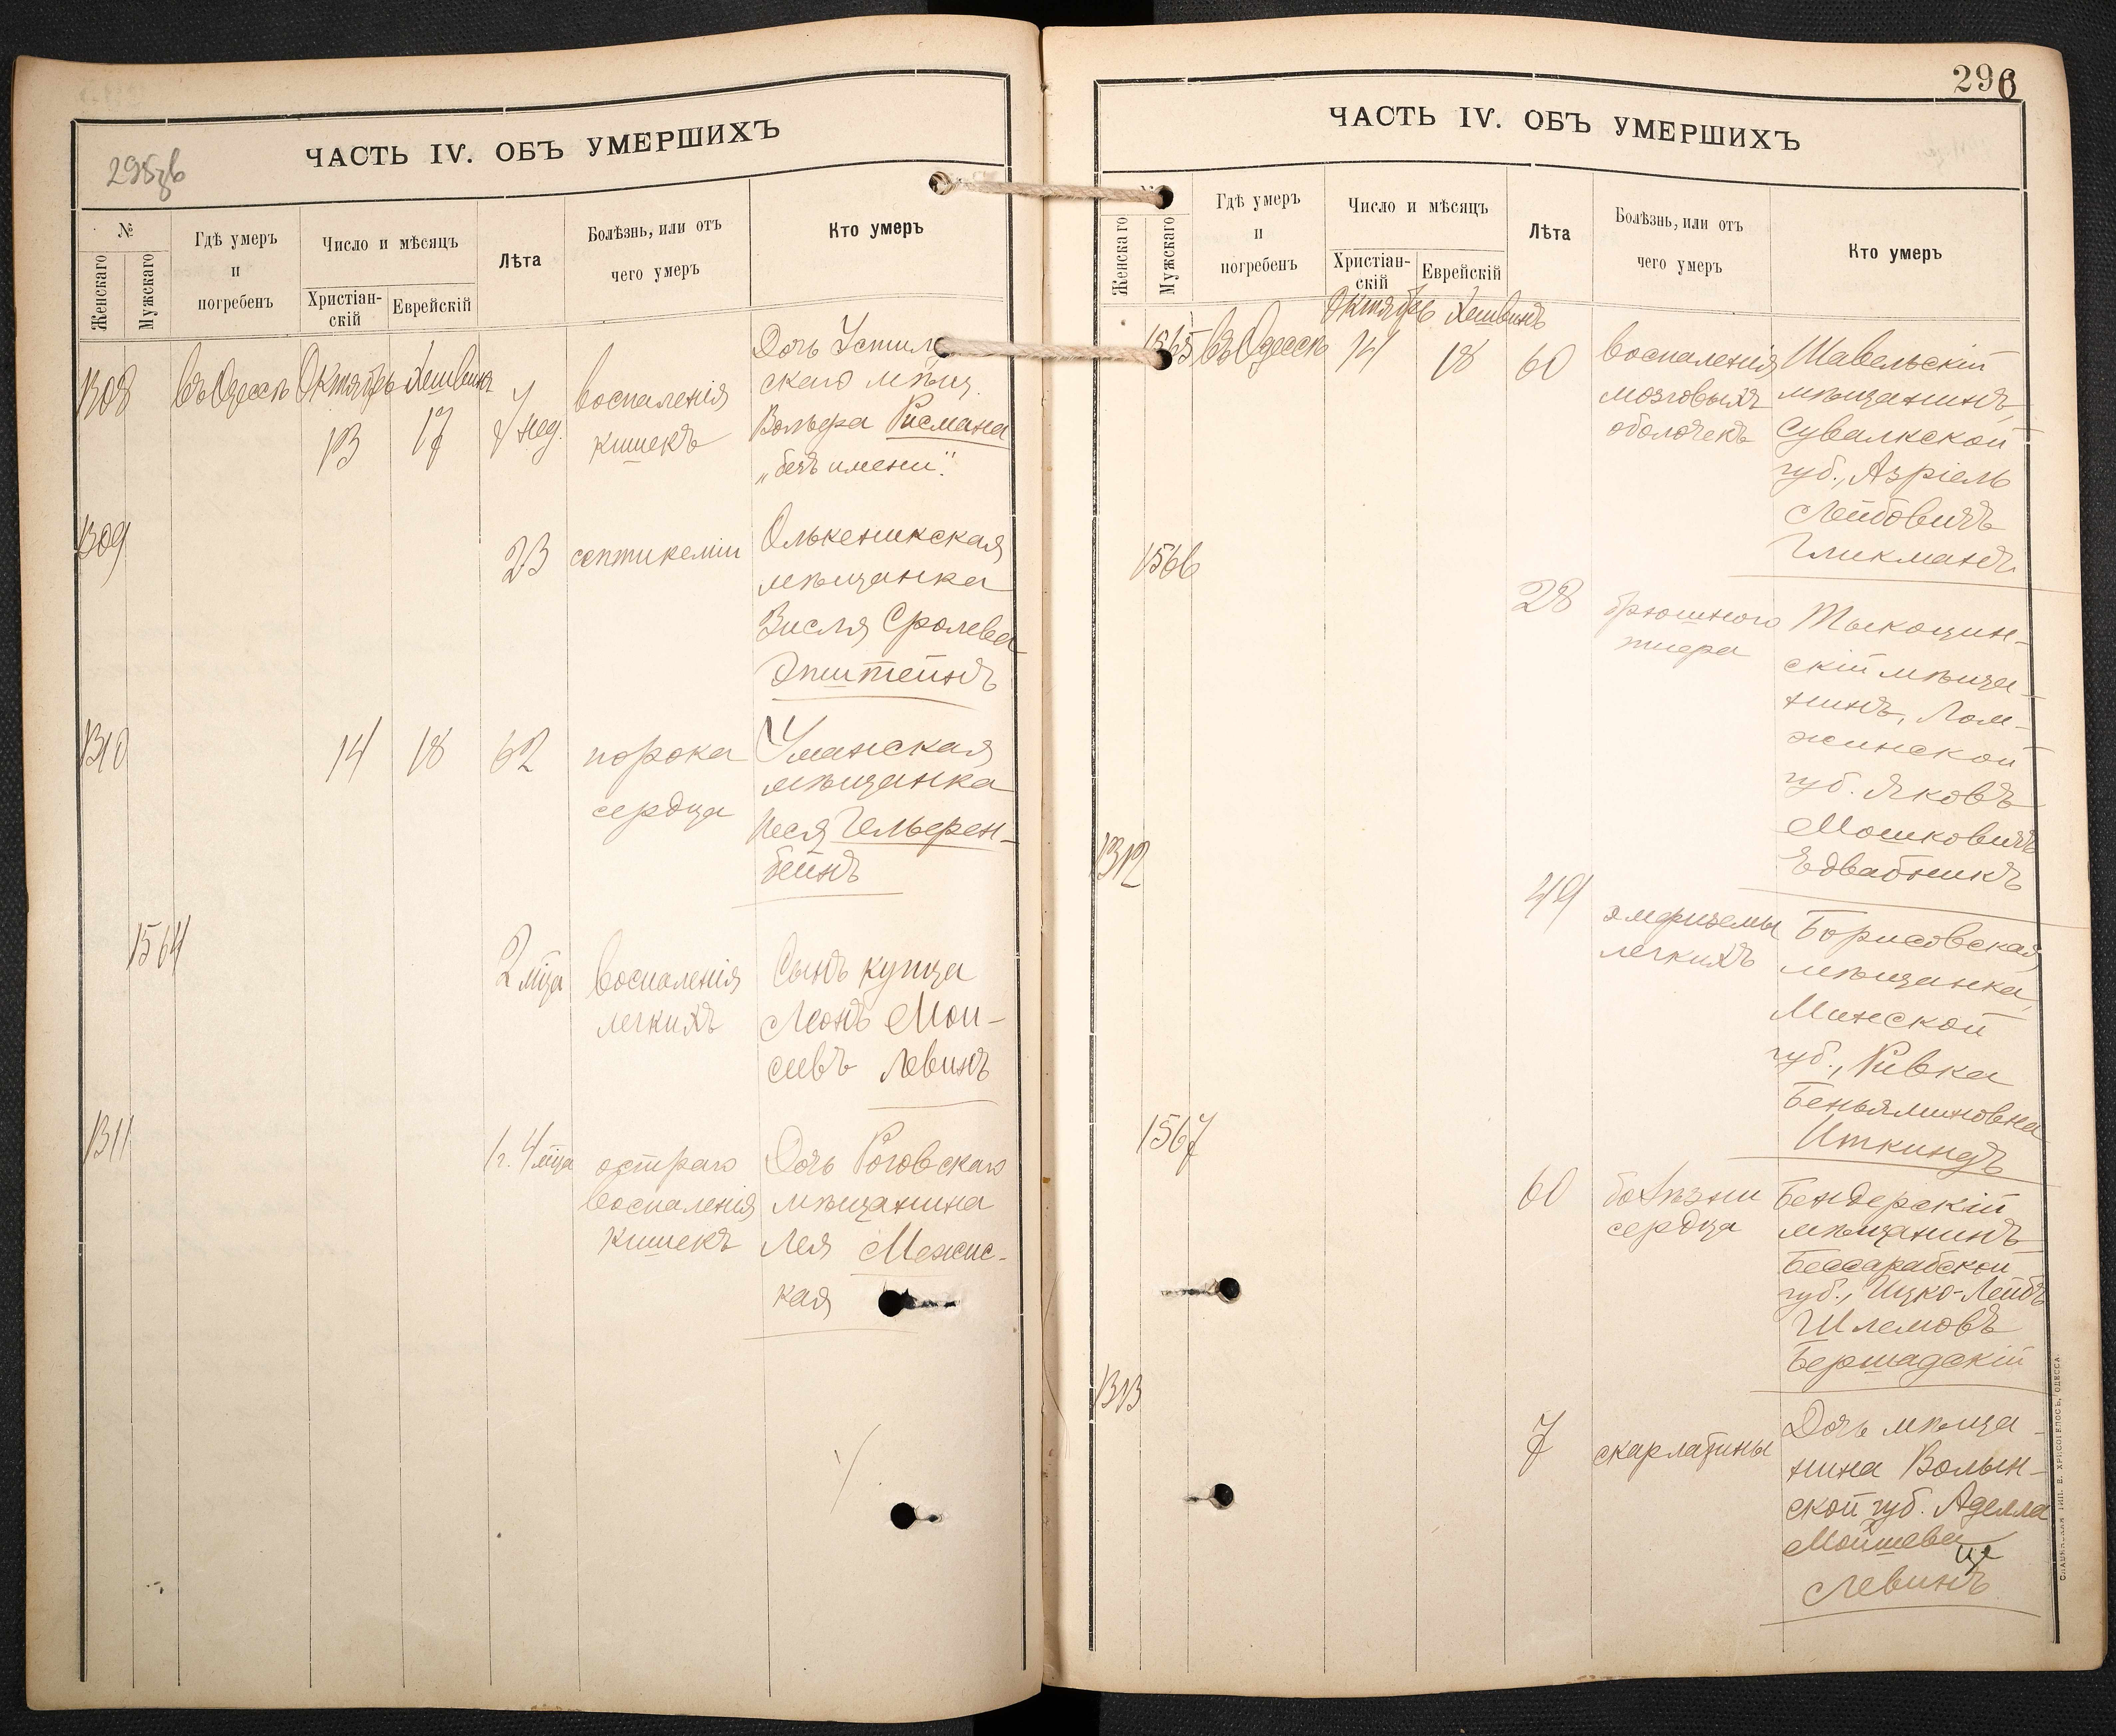 ЧАСТЬ IV. ОБЪ УМЕРШИХЪ
295 зв
№
Женскаго
Мужскаго
Гдѣ умеръ
и
погребенъ
Число и мѣсяцъ
Христіан-
скій
Еврейскій
Лѣта
Болѣзнь, или отъ
чего умеръ
Кто умеръ
1308
въ Одессѣ
Октябрь
13
Хешвинъ
17
7 нед.
воспаленія
кишекъ
Дочь
скаго мѣщ.
Вольфа Рисмана
„безъ имени".
1309
23
септикеміи
Олькеникская
мѣщанка
Зисля Сролева
Эпштейнъ
1310
14
18
62
порока
сердца
Уманская
мѣщанка
Песя Гельфен-
бейнъ
1564
2 мца
воспаленія
легкихъ
Сынъ купца
Леонъ Мои-
сеевъ Левинъ
1311
1 г. 4 мца
остраго
воспаленія
кишекъ
Дочь Роговскаго
мѣщанина
Лея Межис-
кая
296
ЧАСТЬ IV. ОБЪ УМЕРШИХЪ
Женскаго
Мужскаго
Гдѣ умеръ
и
погребенъ
Число и мѣсяцъ
Христіан-
скій
Еврейскій
Лѣта
Болѣзнь, или отъ
чего умеръ
Кто умеръ
1565
въ Одессѣ
Октябрь
14
Хешвинъ
18
60
воспаленія
мозговыхъ
оболочекъ
Шавельскій
мѣщанинъ,
Сувалкской
губ., Азріель
Лейбовичъ
Гликманъ
1566
28
брюшного
тифа
Тыкоцин-
скій мѣща-
нинъ, Лом-
жинской
губ. Яковъ
Мошковичъ
Едвабникъ
1312
49
эмфиземы
легкихъ
Борисовская
мѣщанка,
Минской
губ., Ривка
Беньяминовна
Иткиндъ
1567
60
болѣзни
сердца
Бендерскій
мѣщанинъ
Бессарабской
губ., Ицко-Лейбъ
Шлемовъ
Бершадскій
1313
7
скарлатины
Дочь мѣща-
нина Волын-
ской губ. Аделла
Мойшева
Левинъ